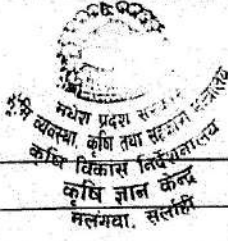 मधेश प्रदेश सरकार
भूमि व्यवस्था, कृषि तथा सहकारी मन्त्रालय
कृषि विकास निर्देशनालय
कृषि ज्ञान केन्द्र
मलंगवा, सर्लाही